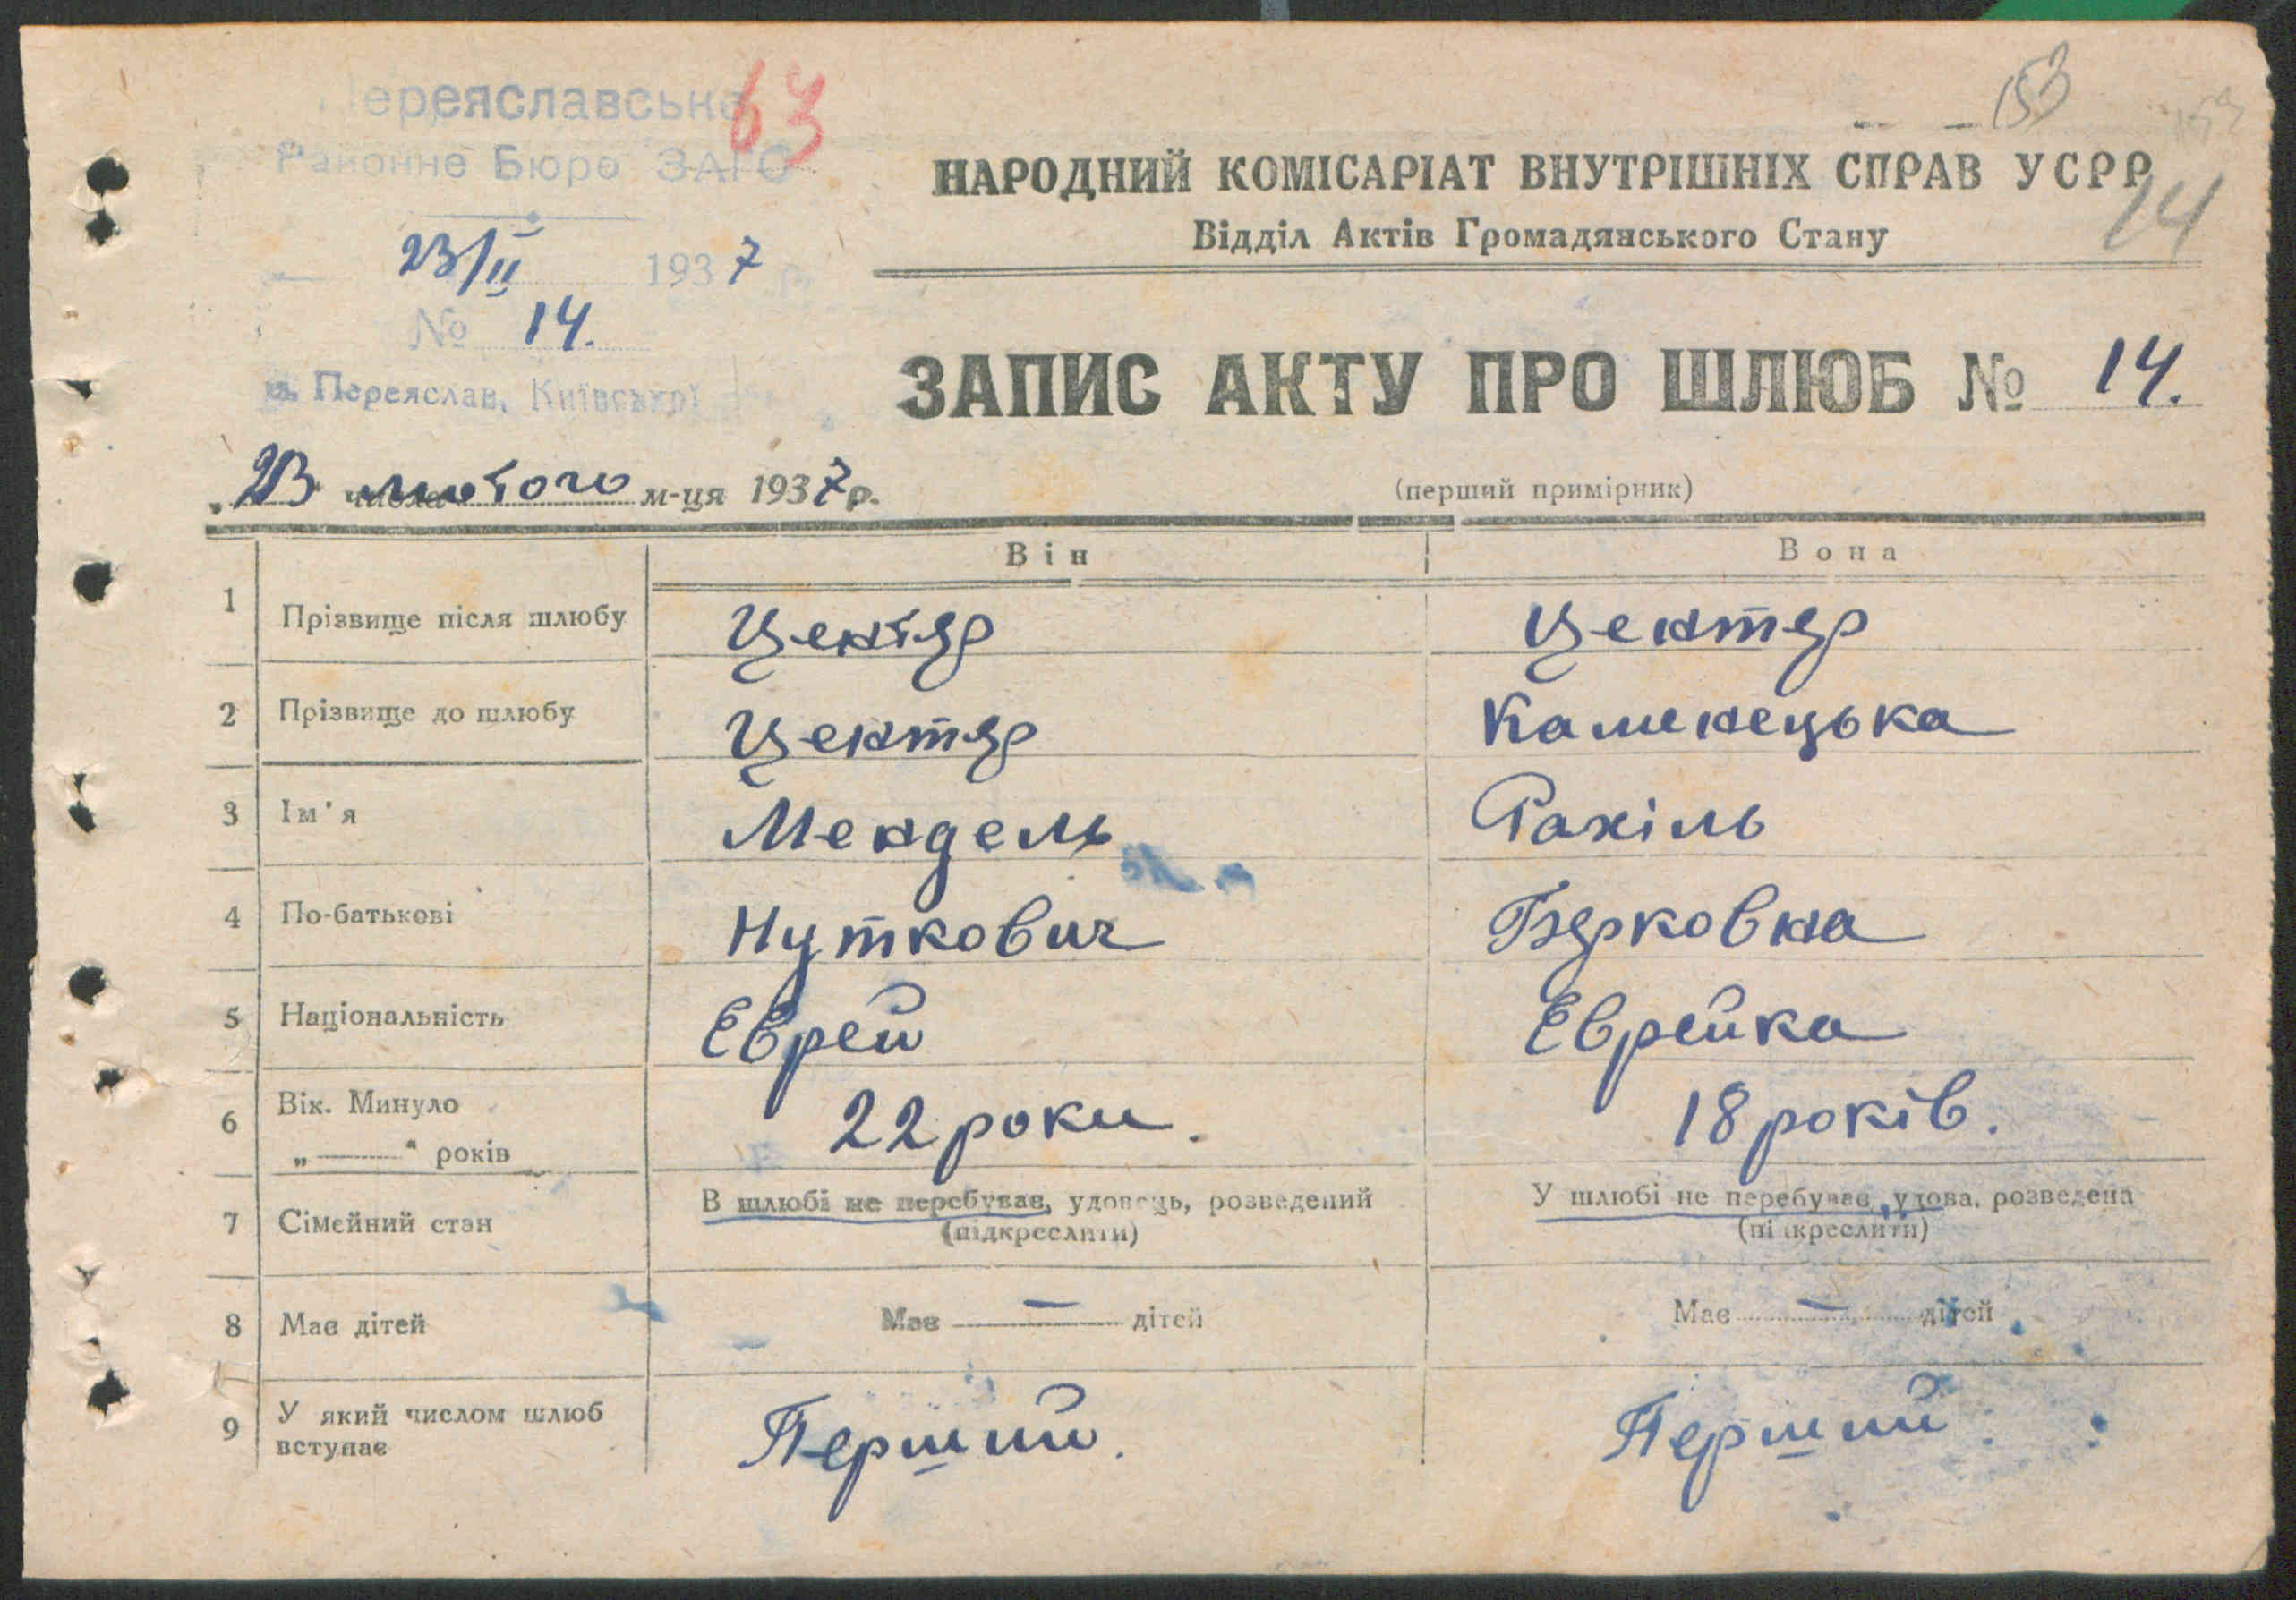 Переяславське
63
Районне Бюро ЗАГС
153
НАРОДНИЙ КОМІСАРІАТ ВНУТРІШНІХ СПРАВ УСРР
14
Відділ Актів Громадянського Стану
23/II 1937 р.
№ 14.
м. Переяслав, Київської
ЗАПИС АКТУ ПРО ШЛЮБ № 14.
„23" числа лютого м-ця 1937 р.
(перший примірник)
Він Вона
1 Прізвище після шлюбу Центер Центер
2 Прізвище до шлюбу Центер Каменецька
3 Ім'я Мендель Рахіль
4 По-батькові Нуткович Берковна
5 Національність Еврей Еврейка
6 Вік. Минуло 22 роки. 18 років.
„ — " років
7 Сімейний стан В шлюбі не перебував, удовець, розведений У шлюбі не перебував, удова, розведена
(підкреслити) (підкреслити)
8 Має дітей Має — дітей Має — дітей
9 У який числом шлюб Перший. Перший.
вступає